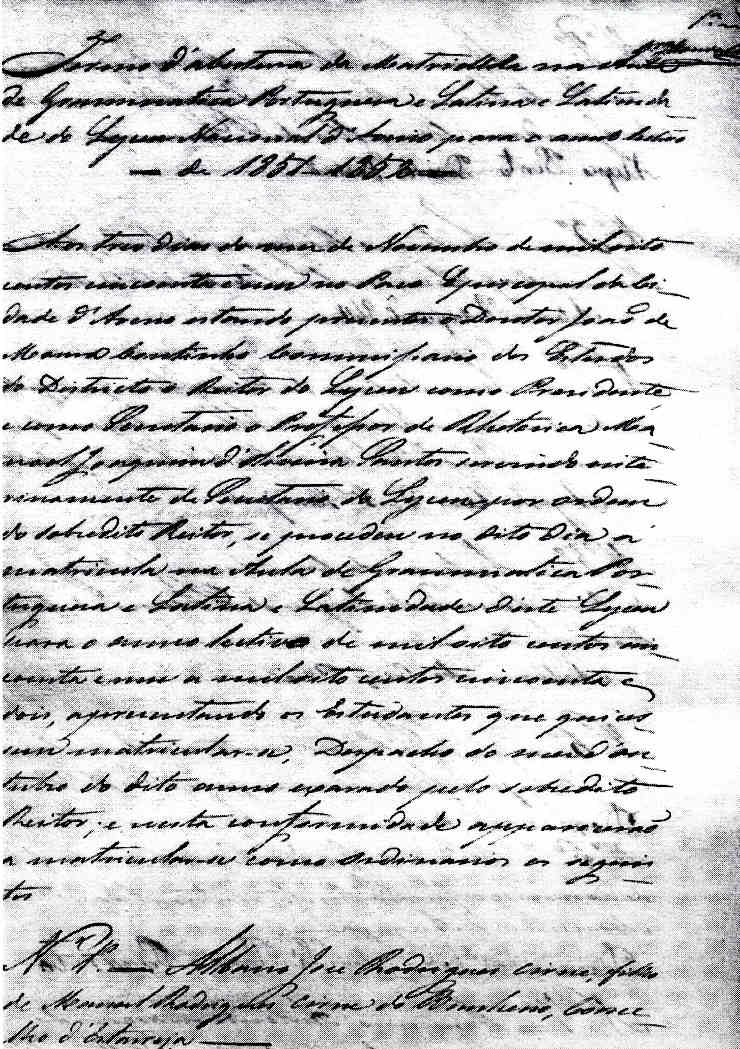 1.ª
Termo d'abertura da Matricula na Aula
de Grammatica Portuguesa e Latina e Latinida-
de do Lyceu Nacional d'Aveiro para o anno lectivo
— de 1851 - 1852 —
Aos tres dias do mez de Novembro de mil oito
centos cincoenta e um no Paco Episcopal da Ci-
dade d'Aveiro estando presentes o Doutor João de
Moura Coutinho Commissario dos Estudos
do Districto e Reitor do Lyceu como Presidente,
e como Secretario o Professor de Rhetorica Ma-
noel Joaquim d'Oliveira Santos servindo inte-
rinamente de Secretario do Lyceu por ordem
do sobredito Reitor, se procedeu no dito dia á
matricula na Aula de Grammatica Por-
tuguesa e Latina e Latinidade deste Lyceu
para o anno lectivo de mil oito centos cin-
coenta e um a mil oito centos cincoenta e
dois, apresentando os Estudantes que quises-
sem matricular-se, Despacho do mez d'Ou-
tubro do dito anno exarado pelo sobredito
Reitor; e nesta conformidade appareceraõ
a matricular-se como ordinarios os seguin-
tes
N.º 1.º — Albano Jose Rodrigues Cirne, filho
de Manuel Rodrigues Cirne do Bunheiro, Conce-
lho d'Estarreja —